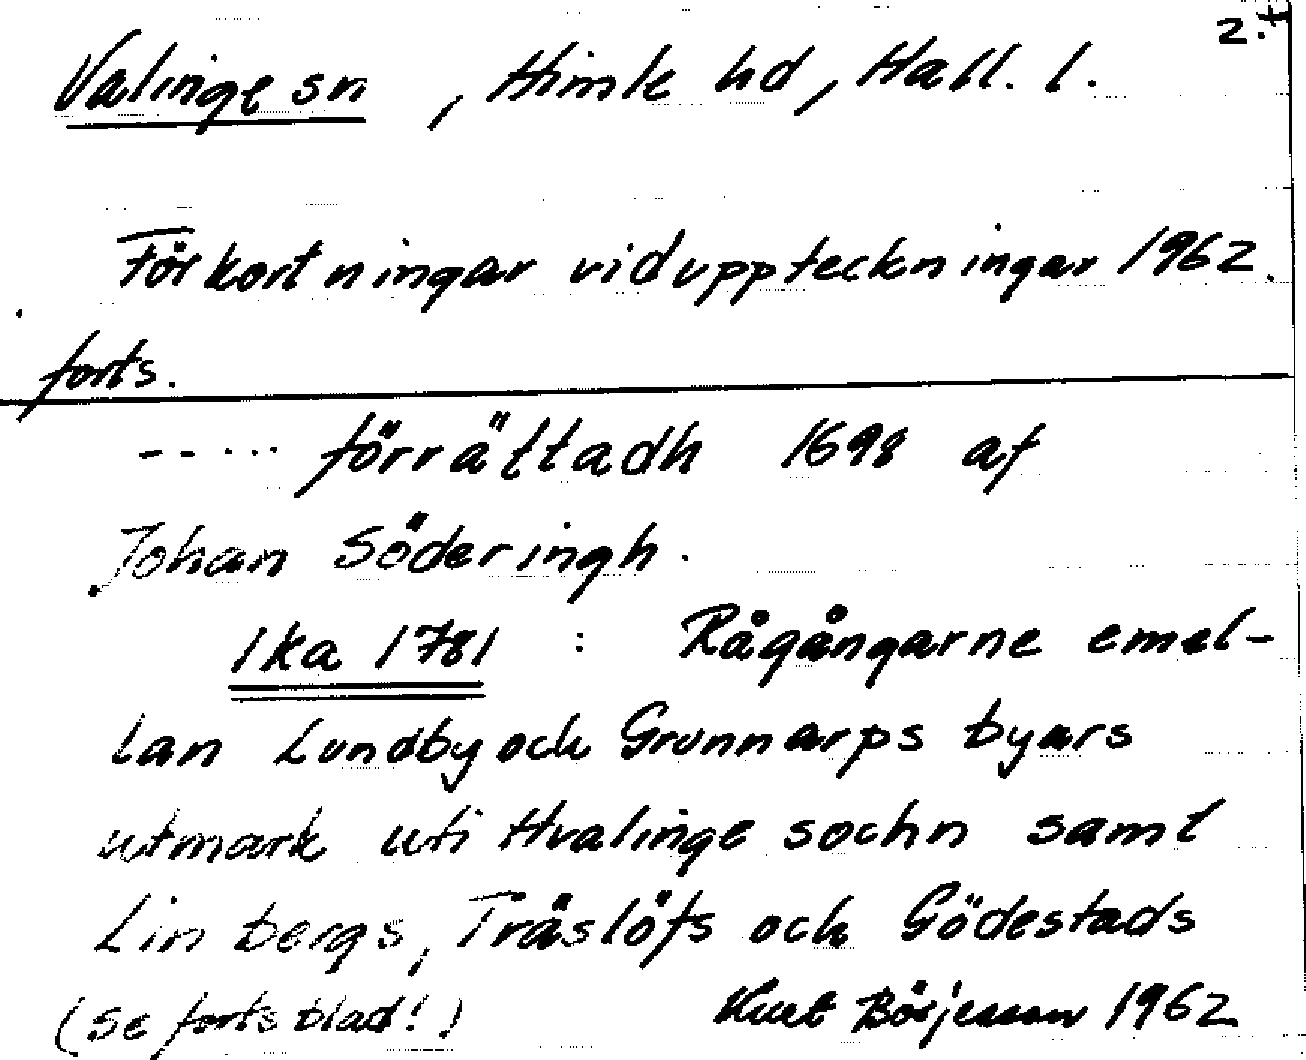 2.t
Valinge sn, Himle hd, Hall. l.
Förkortningar vid uppteckningar 1962.
forts.
--··· förrättadh 1698 af
Johan Söderingh.
lka 1781 : Rågångarne emel-
lan Lundby och Grunnarps byars
utmark uti Hvalinge sochn samt
Linbergs, Träslöfs och Gödestads
(se forts blad!) Kurt Börjesson 1962